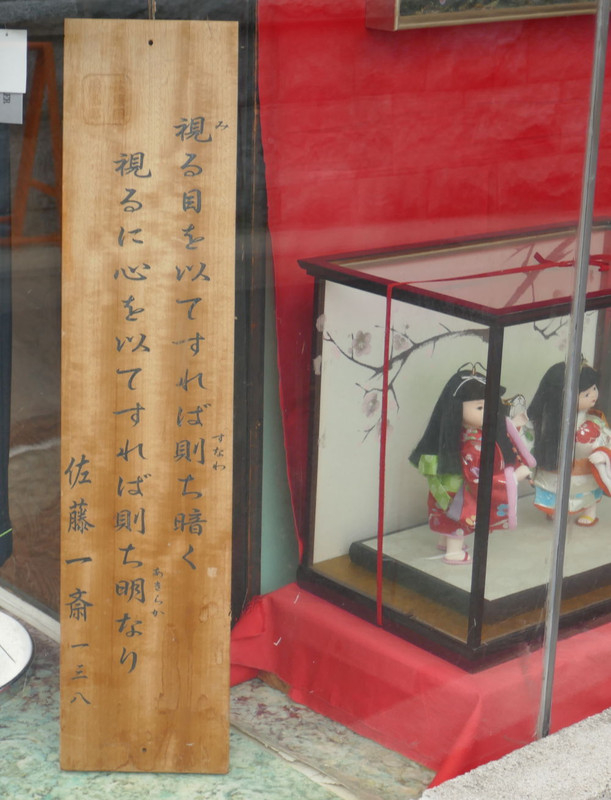 視る目を以てすれば則ち暗く
視るに心を以てすれば則ち明なり
佐藤一斎 一三八
み
すなわ
あきらか